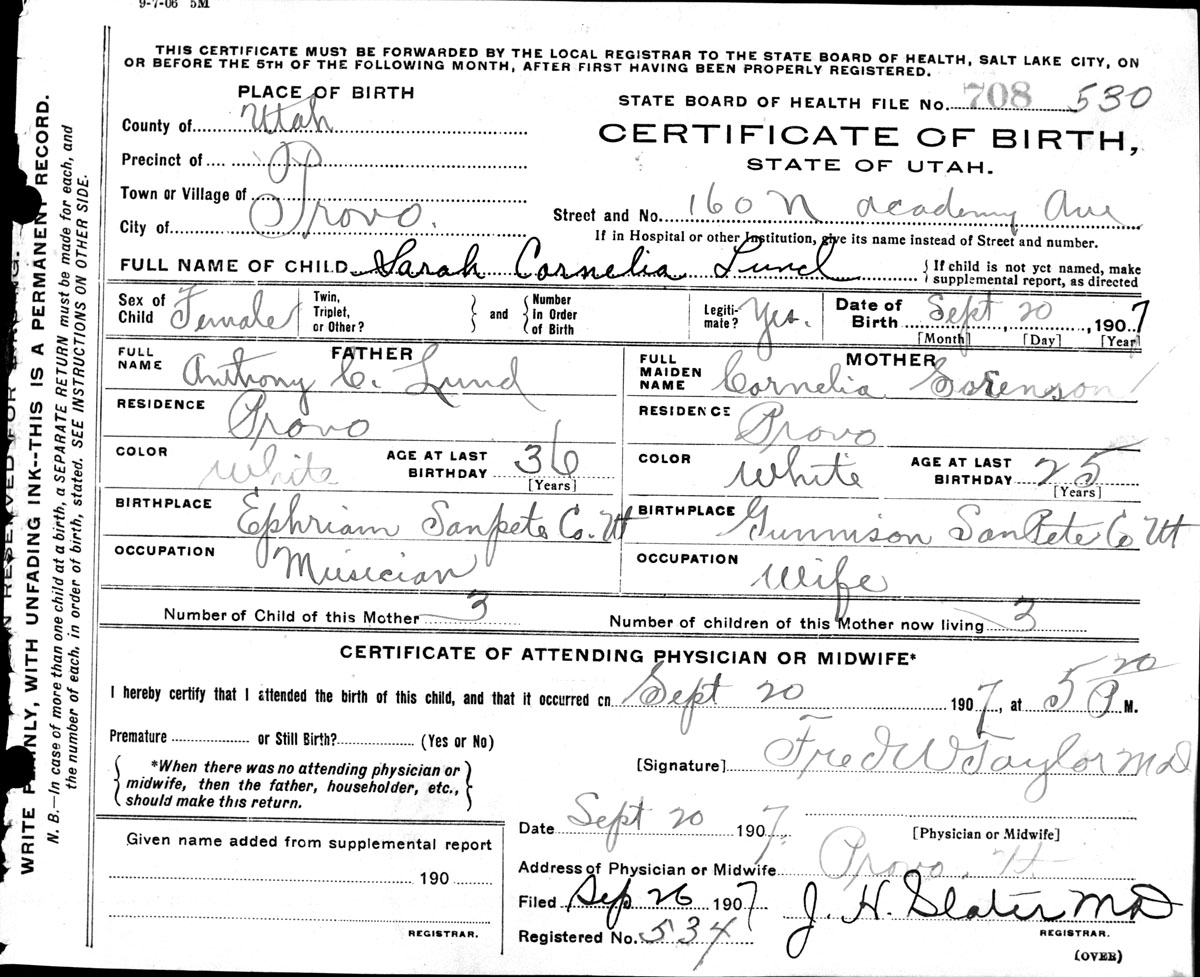 9-7-06 5M
THIS CERTIFICATE MUST BE FORWARDED BY THE LOCAL REGISTRAR TO THE STATE BOARD OF HEALTH, SALT LAKE CITY, ON
OR BEFORE THE 5TH OF THE FOLLOWING MONTH, AFTER FIRST HAVING BEEN PROPERLY REGISTERED.
PLACE OF BIRTH
County of Utah
Precinct of
Town or Village of
City of Provo.
STATE BOARD OF HEALTH FILE No. 708 530
CERTIFICATE OF BIRTH,
STATE OF UTAH.
Street and No. 160 N academy Ave
If in Hospital or other Institution, give its name instead of Street and number.
FULL NAME OF CHILD Sarah Cornelia Lund
{If child is not yet named, make
supplemental report, as directed
Sex of
Child Female
Twin,
Triplet,
or Other?
} and {
Number
In Order
of Birth
Legiti-
mate? Yes.
Date of
Birth Sept 20, 1907
[Month] [Day] [Year]
FATHER
FULL
NAME Anthony C. Lund
RESIDENCE Provo
COLOR White
AGE AT LAST
BIRTHDAY 36
[Years]
BIRTHPLACE Ephriam Sanpete Co. Ut
OCCUPATION Musician
MOTHER
FULL
MAIDEN
NAME Cornelia Sorenson
RESIDENCE Provo
COLOR White
AGE AT LAST
BIRTHDAY 25
[Years]
BIRTHPLACE Gunnison SanPete Co Ut
OCCUPATION Wife
Number of Child of this Mother 3
Number of children of this Mother now living 3
CERTIFICATE OF ATTENDING PHYSICIAN OR MIDWIFE*
I hereby certify that I attended the birth of this child, and that it occurred on Sept 20 1907, at 5 20 P M.
Premature or Still Birth? (Yes or No)
{*When there was no attending physician or
midwife, then the father, householder, etc.,
should make this return.}
[Signature] Fred W Taylor MD
Date Sept 20 1907.
[Physician or Midwife]
Address of Physician or Midwife Provo. Ut.
Filed Sep 26 1907 J. H. Slater MD
Registered No. 534
REGISTRAR.
(OVER)
Given name added from supplemental report
190
REGISTRAR.
RESERVED FOR BINDING.
WRITE PLAINLY, WITH UNFADING INK--THIS IS A PERMANENT RECORD.
N. B.—In case of more than one child at a birth, a SEPARATE RETURN must be made for each, and
the number of each, in order of birth, stated. SEE INSTRUCTIONS ON OTHER SIDE.